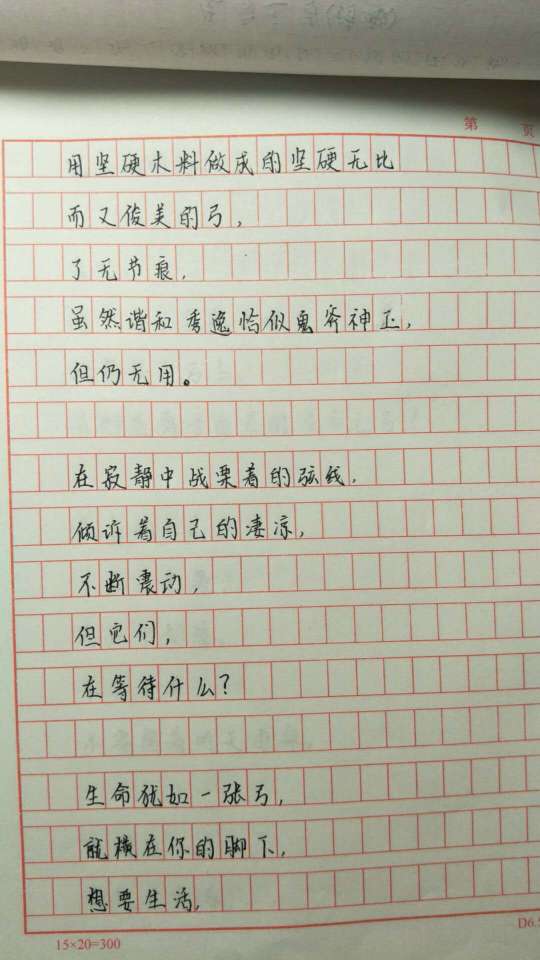 第 页
用坚硬木料做成的坚硬无比
而又俊美的弓，
了无节痕，
虽然谐和秀逸恰似鬼斧神工，
但仍无用。
在寂静中战栗着的弦线，
倾诉着自己的凄凉，
不断震动，
但它们，
在等待什么？
生命犹如一张弓，
就横在你的脚下，
想要生活，
15×20=300